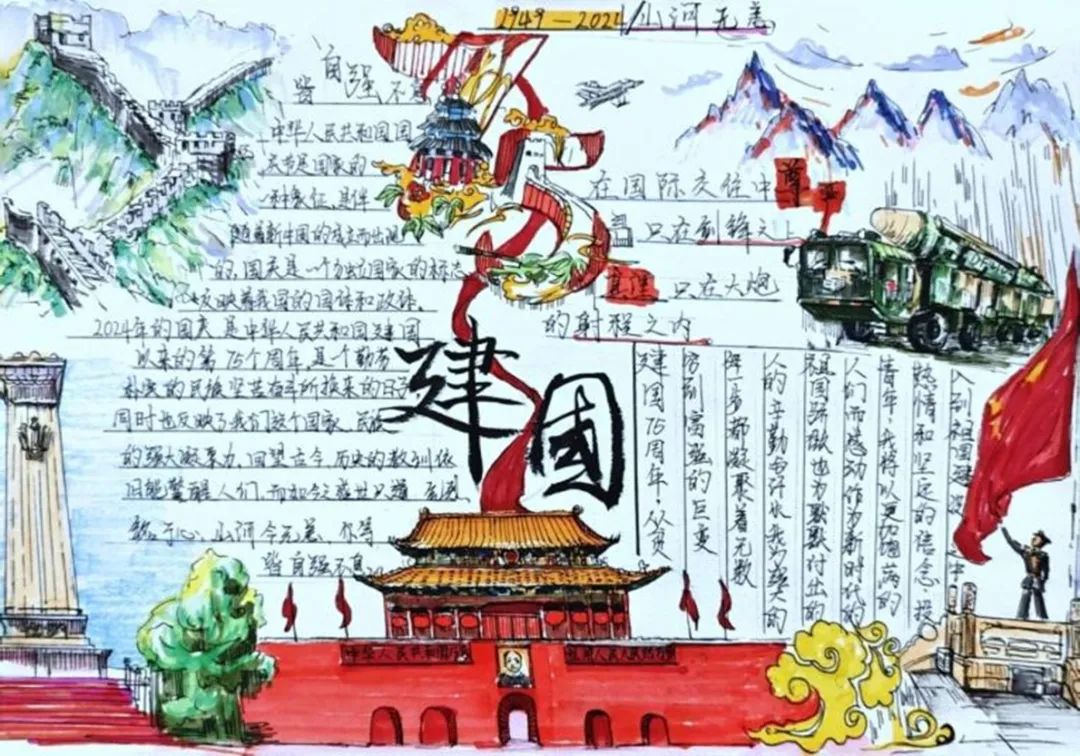 1949—2024/山河无恙
自强不
中华人民共和国国
庆节是国家的
一种象征,是伴
随着新中国的成立而出现
的,国庆是一个独立国家的标志
反映着我国的国体和政体。
2024年的国庆是中华人民共和国建国
以来的第75个周年,是一个勤劳
朴实的民族坚苦奋斗所换来的日子
同时也反映了我们这个国家、民族
的强大凝聚力,回望古今历史的教训依
旧能警醒人们,而如今盛世
于心、山河今无恙、尔等
当自强不息
在国际交往中尊严
只在剑锋之上
真理只在大炮
的射程之内
建国
建国75周年,从贫
穷到富强的巨变
步都凝聚着无数
人的辛勤与汗水我为
祖国骄傲也为默默付出的
人们而感动作为新时代的
青年,我将以更加饱满的
热情和坚定的信念,投
入到祖国建设中
中华人民共和国